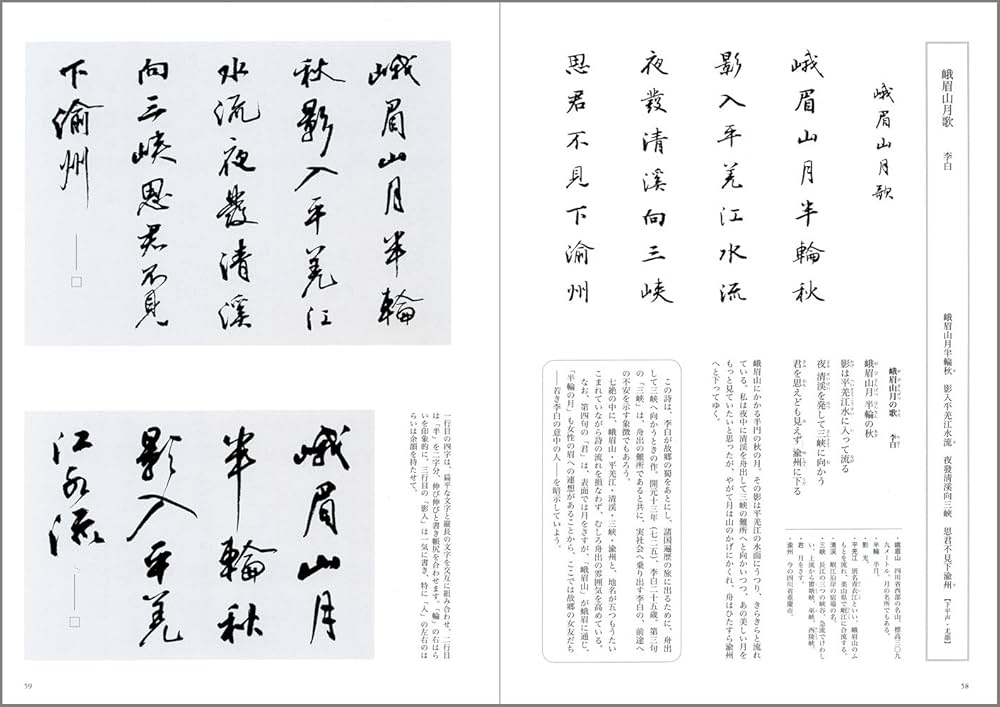 峨眉山月歌　李白
峨眉山月半輪秋　影入平羌江水流　夜發清溪向三峡　思君不見下渝州【下平声・尤韻】
峨眉山月歌
峨眉山月半輪秋
影入平羌江水流
夜發清溪向三峡
思君不見下渝州
峨眉山月の歌　李白
峨眉山月　半輪の秋
影は平羌江水に入って流る
夜　清渓を発して三峡に向かう
君を思えども見えず　渝州に下る
・峨眉山　四川省西部の名山。標高三〇九
九メートル。月の名所でもある。
・半輪　半月。
・影　光。
・平羌江　別名青衣江といい、峨眉山のふ
もとを流れ、楽山県で岷江に合流する。
・清渓　岷江沿岸の宿場の名。
・三峡　長江の三つの峡谷。急流でけわし
い。上流から瞿塘峡、巫峡、西陵峡。
・君　月をさす。
・渝州　今の四川省重慶市。
峨眉山にかかる半円の秋の月。その影は平羌江の水面にうつり、きらきらと流れ
ている。私は夜中に清渓を舟出して三峡の難所へと向かいつつ、あの美しい月を
もっと見ていたいと思ったが、やがて月は山のかげにかくれ、舟はひたすら渝州
へと下ってゆく。
この詩は、李白が故郷の蜀をあとにし、諸国遍歴の旅に出るために、舟出
して三峡へ向かうときの作。開元十三年（七二五）、李白二十五歳。第三句
の「三峡」は、舟出の難所であると共に、実社会へ乗り出す李白の、前途へ
の不安を示す象徴でもあろう。
七絶の中に、峨眉山・平羌江・清渓・三峡・渝州と、地名が五つもうたい
こまれていながら詩の流れを損なわず、むしろ舟出の雰囲気を高めている。
なお、第四句の「君」は、表面では月をさすが、「峨眉山」が蛾眉に通じ、
「半輪の月」も女性の眉への連想があることから、ここでは故郷の女友だち
――若き李白の意中の人――を暗示していよう。
58
峨眉山月半輪
秋影入平羌江
水流夜發清溪
向三峡思君不見
下渝州
一行目の四字は、扁平な文字と縦長の文字を交互に組み合わせ、二行目
は「半」を二字分、伸び伸びと書き帳尻を合わせます。「輪」の右はら
いを印象的に、三行目の「影入」は一気に書き、特に「人」の左右のは
らいは余韻を持たせて。
峨眉山月
半輪秋
影入平羌
江水流
59